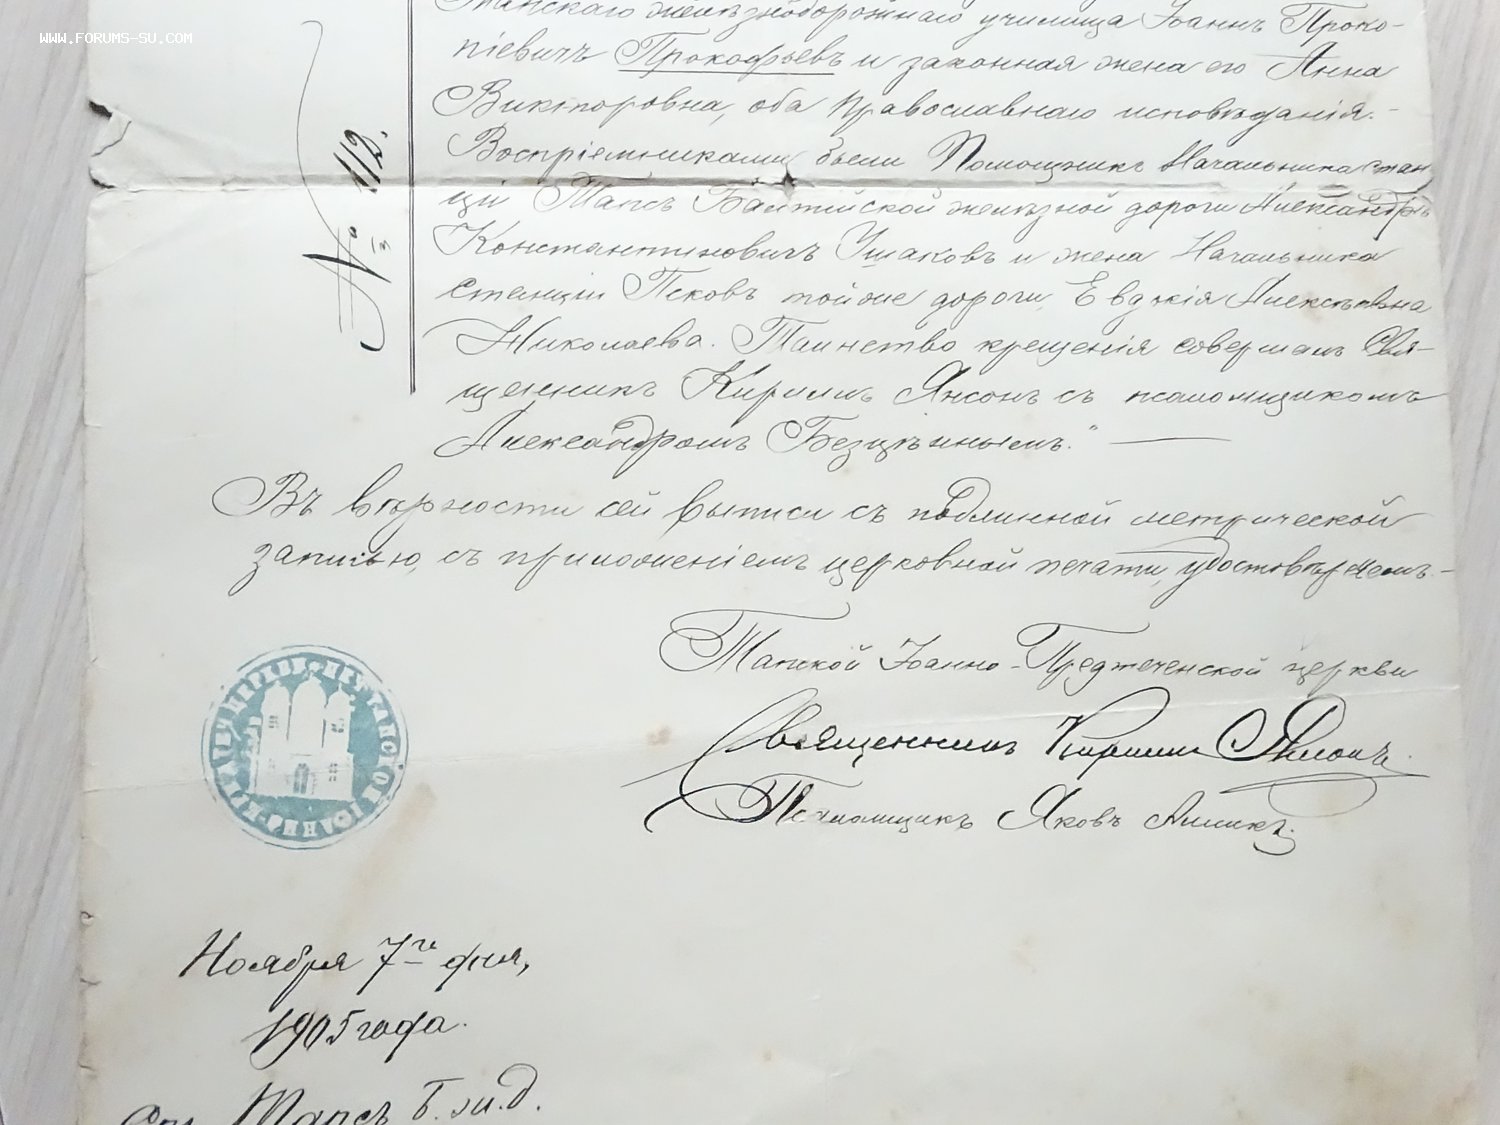 WWW.FORUMS-SU.COM
Тапскаго желѣзнодорожнаго училища Іоаннъ Проко-
піевичъ Прокофьевъ и законная жена его Анна
Викторовна, оба православнаго исповѣданія.-
Воспріемниками были Помощникъ Начальника стан
ціи Тапсъ Балтійской желѣзной дороги Александръ
Константиновичъ Ушаковъ и жена Начальника
станціи Псковъ той же дороги, Евдокія Алексѣевна
Николаева. Таинство крещенія совершалъ Свя-
щенникъ Кириллъ Янсонъ съ псаломщикомъ
Александромъ Безцѣннымъ."
№ 112.
Въ вѣрности сей выписи съ подлинной метрической
записью, съ приложеніемъ церковной печати, удостовѣряемъ.-
Тапской Іоанно-Предтеченской церкви
Священникъ Кириллъ Янсонъ.
Псаломщикъ Яковъ
Ноября 7го дня,
1905 года.
Ст. Тапсъ Б. ж. д.